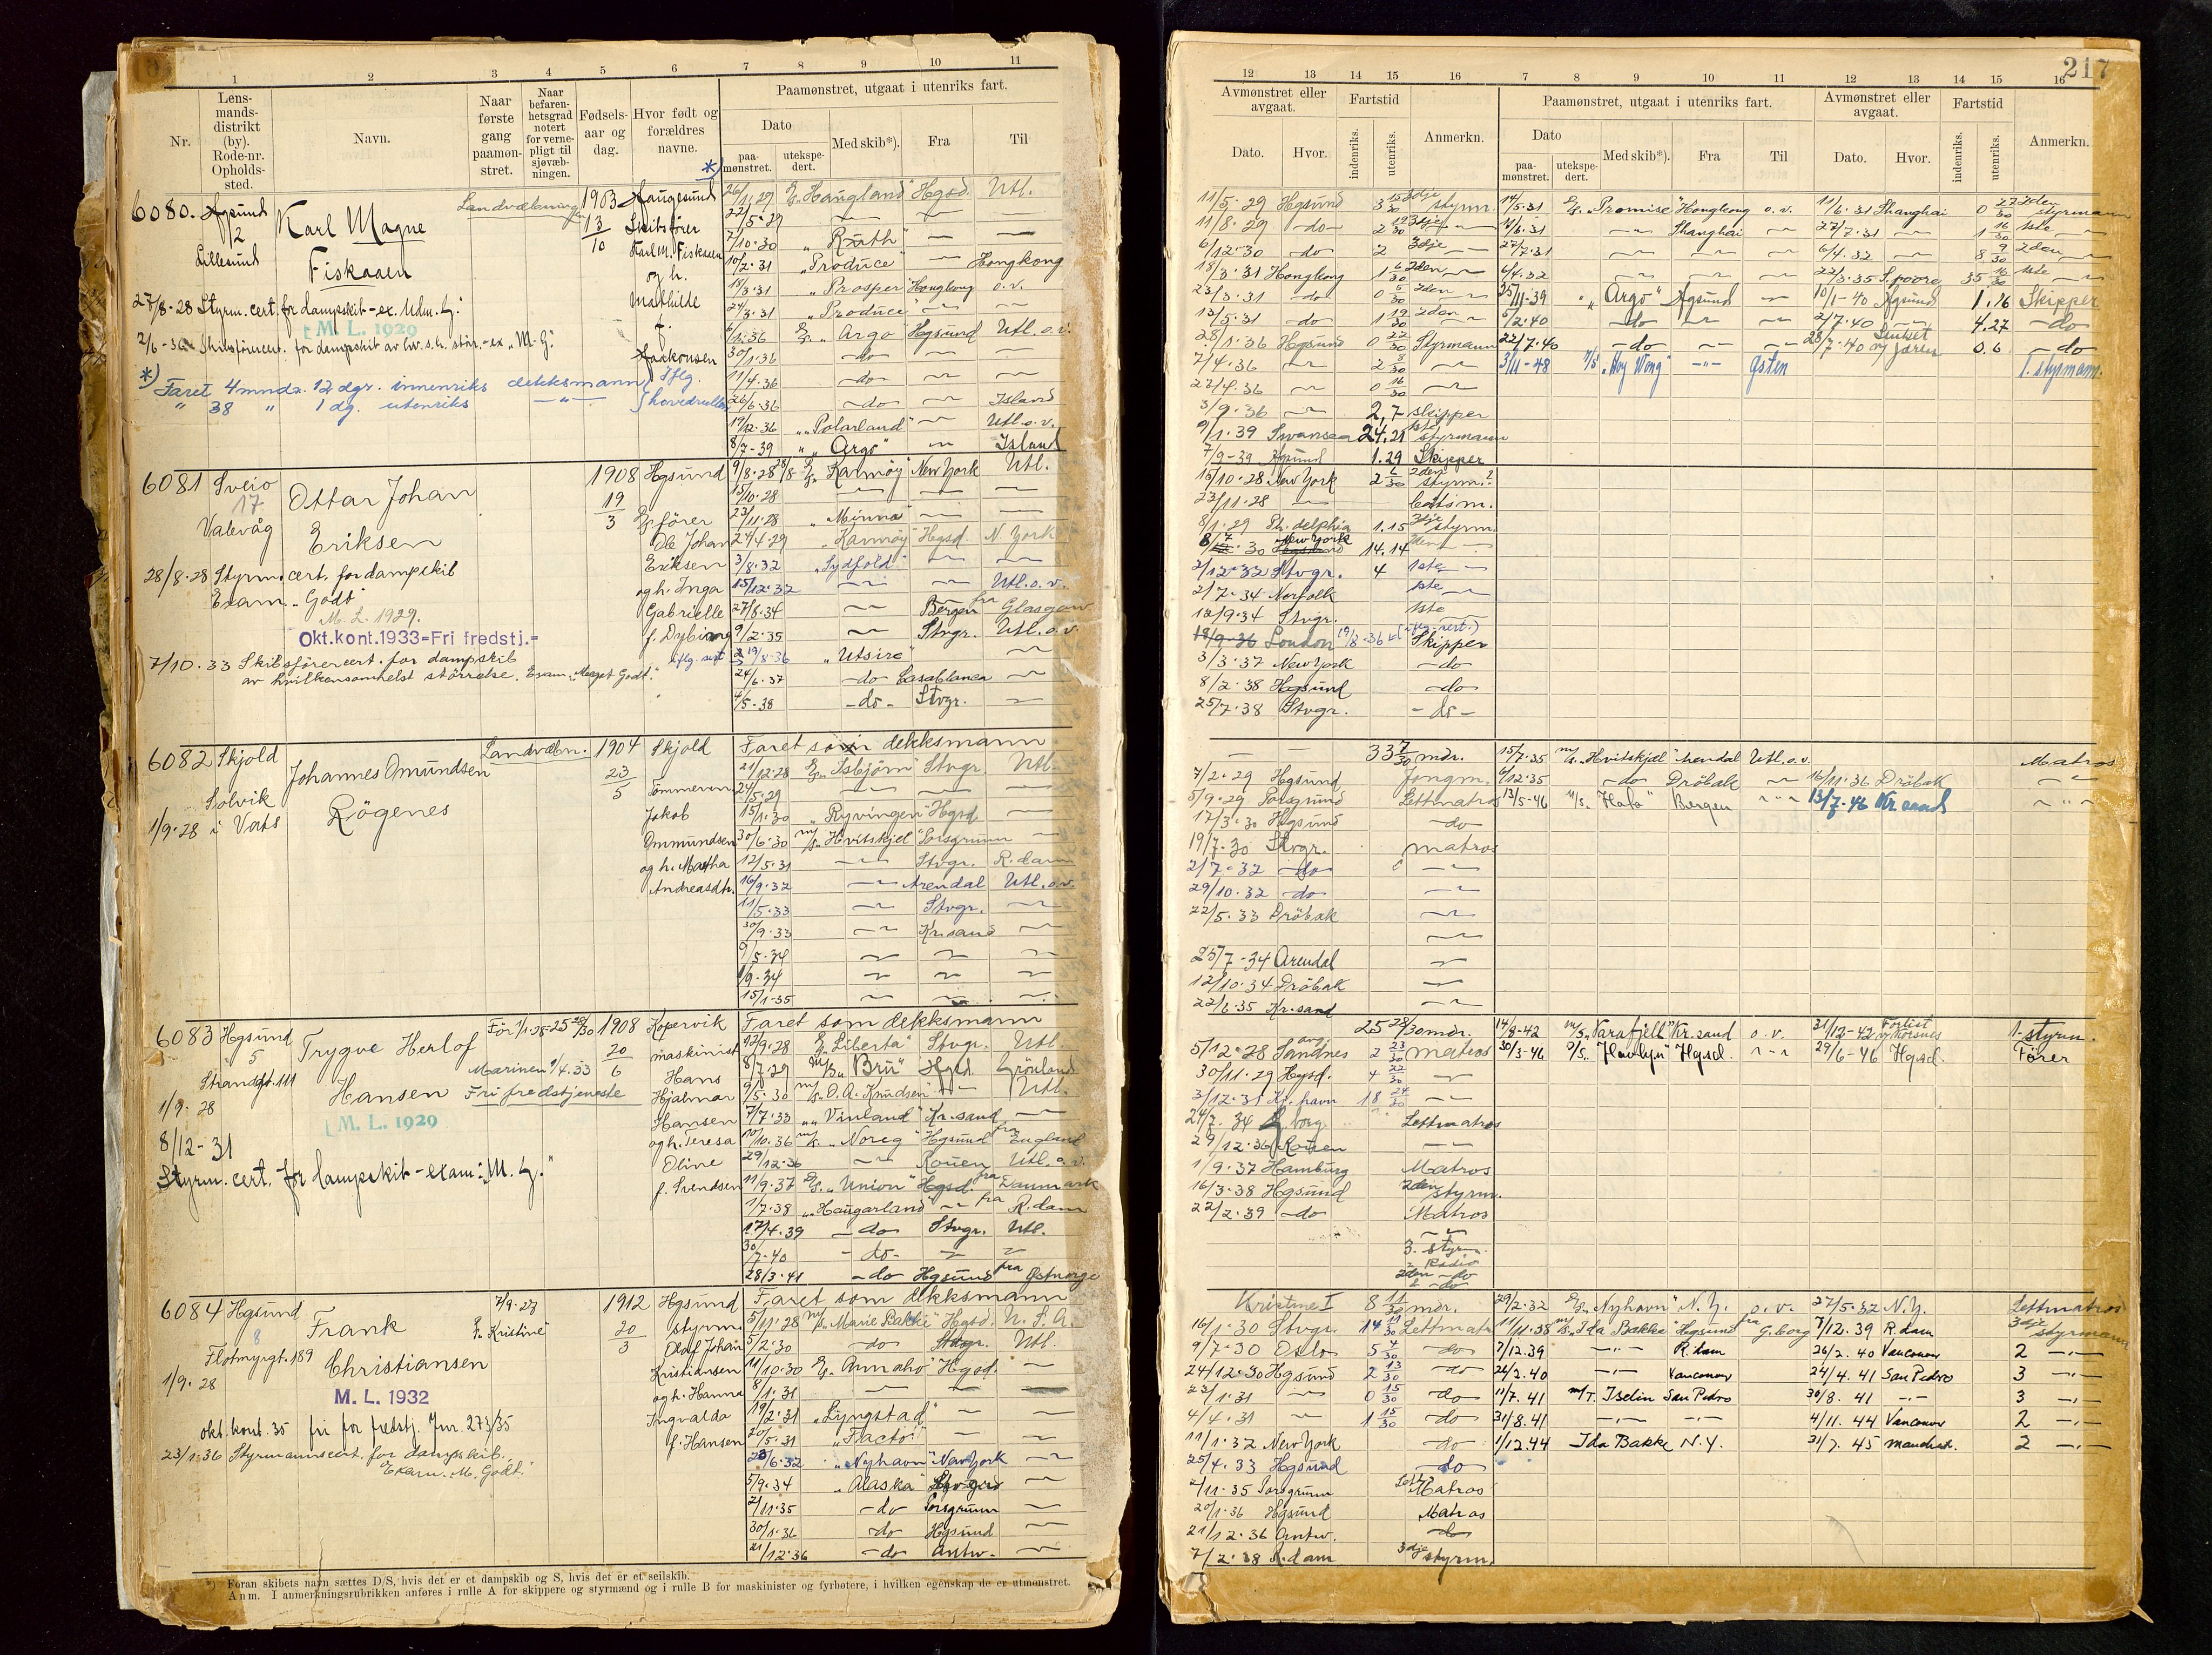 1 2 3 4 5 6 7 8 9 10 11
Nr.
Lens-
mands-
distrikt
(by).
Rode-nr.
Opholds-
sted.
Navn.
Naar
første
gang
paamøn-
stret.
Naar
befaren-
hetsgrad
notert
for verne-
pligt til
sjøvæb-
ningen.
Fødsels-
aar og
dag.
Hvor født og
forældres
navne.
Paamønstret, utgaat i utenriks fart.
Dato
paa-
mønstret.
utekspe-
dert.
Med skib*).
Fra
Til
6080.
2
Lillesund
Karl Magne
Fiskaaen
Landvæbning
1903
13
10
Haugesund
Skibsfører
Karl M. Fiskaaen
og h.
Mathilde
f.
27/8-28 Styrm. cert. for dampskib - ex. Udm. g."
M. L. 1929
*) Faret 4 mndr. 12 dgr. innenriks dekksmann
" 38 " 1 dg. utenriks
Iflg.
hovedrullen
26/1.29 "Haugland" Hgsd. Utl.
22/5-29
7/10.30 "Ruth"
10/2.31 "Produce" Hongkong
18/3.31 "Prosper" Hongkong o. v.
24/3.31 "Produce"
6/1.36 "Argo" Hgsund Utl. o.v.
30/1.36 -do-
11/4.36 -do-
26/6.36 -do- Island
19/12.36 "Polarland" Utl. o. v.
8/7-39 "Argo" Island
6081 Sveio
17
Valevåg
Ottar Johan
Eriksen
1908
19
3
Hgsund
fører
Ole Johan
Eriksen
og h. Inga
Gabrielle
28/8.28 Styrm. cert. for dampskib
Exam. "Godt"
M. L. 1929.
Okt.kont.1933=Fri fredstj.=
7/10.33 Skibsførercert. for dampskib
av hvilkensomhelst størrelse. Exam. "Meget Godt".
9/8.28 "Karmøy" New York Utl.
15/10.28
23/11.28 "Minna"
27/4.29 "Karmøy" Hgsd. N. York
3/8.32 "Sydfold"
15/12.32 Utl. o. v.
27/8.34 Bergen fra Glasgow
9/2.35 Stvgr. Utl. o. v.
19/8-36 "Utsire"
24/6.37 -do- Casablanca
4/5-38 -do- Stvgr.
6082 Skjold
Solvik
1/9.28 i Vats
Johannes Omundsen
Røgenes
Landvæbn.
1904
23
5
Skjold
Tømmerm.
Jakob
Ommundsen
og h. Martha
Andreasdtr.
Faret som dekksmann
21/12.28 "Isbjørn" Stvgr. Utl.
24/5.29
15/1.30 "Ryvingen" Hgsd.
30/6.30 "Hvitskjel" Porsgrunn
12/5.31 Stvgr. R.dam
16/9.32 Arendal Utl. o. v.
11/5.33 Stvgr.
30/9.33 Kr.sand
9/5-34
1/9.34
15/1-35
6083 Hgsund
5
Strandgt. 111
1/9. 28
Trygve Herlof
Hansen
Marinen 1/4.33
Fri fredstjeneste
1908
20
6
Kopervik
maskinist
Hans
Hjalmar
Hansen
og h. Teresa
Oline
f. Svendsen
M. L. 1929
8/12-31
Styrm. cert. for dampskib - exam: "M. g."
Faret som dekksmann
12/9.28 "Liberta" Stvgr. Utl.
8/7.29 "Bru" Hgsd. Grønland
9/5.30 "O. A. Knudsen" Utl.
7/7.33 "Vinland" Kr.sand
10/10.36 "Noreg" Hgsund fra England
29/12.36 Rouen Utl. o. v.
11/9.37 "Union" Hgsd. fra Danmark
1/7.38 "Haugarland" fra R.dam
17/4.39 -do- Stvgr. Utl.
30/7-40 -do-
28/3.41 -do- Hgsund fra Østnorge
6084 Hgsund
8
Flotmyrgt. 189
1/9. 28
Frank
Christiansen
"Kristine"
1912
20
3
Hgsund
styrm.
Olaf Johan
Kristiansen
og h. Hanna
Ingvalda
f. Hansen
M. L. 1932
okt. kont. 35 fri for fredstj. Jnr. 273/35
23/1.36 Styrmannscert. for dampskib.
Exam. "M. Godt."
Faret som dekksmann
5/11.28 "Marie Bakke" Hgsd. U. S. A.
5/2.30 -do- Stvgr. Utl.
11/10.30 "Annaho" Hgsd.
8/1.31
19/2.31 "Lyngstad"
20/5.31 "Factor"
23/6.32 "Nyhavn" New York
5/9.34 "Alaska"
2/11.35 -do- Porsgrunn
30/1.36 -do- Hgsund
21/12.36 -do- Antw.
*) Foran skibets navn sættes D/S, hvis det er et dampskib og S, hvis det er et seilskib.
Anm. I anmerkningsrubrikken anføres i rulle A for skippere og styrmænd og i rulle B for maskinister og fyrbøtere, i hvilken egenskap de er utmønstret.
217
12 13 14 15 16 7 8 9 10 11 12 13 14 15 16
Avmønstret eller
avgaat.
Fartstid
Dato.
Hvor.
indenriks.
utenriks.
Anmerkn.
Paamønstret, utgaat i utenriks fart.
Dato
paa-
mønstret.
utekspe-
dert.
Med skib*).
Fra
Til
Avmønstret eller
avgaat.
Fartstid
Dato.
Hvor.
indenriks.
utenriks.
Anmerkn.
11/5.29 Hgsund 3 15/30 3dje styrm. 14/5.31 "Promise" Hongkong o. v. 11/6.31 Shanghai 0 27/30 2den styrmann
11/8.29 -do- 2 19/30 3dje 11/6.31 Shanghai 27/7.31 1 16/30 1ste
6/12.30 -do- 2 3dje 27/7.31 6/4.32 8 9/30 2den
18/3.31 Hongkong 1 6/30 2den 6/4.32 22/3.35 S.poore 35 16/30 1ste
23/3.31 -do- 0 5/30 2den 25/11-39 "Argo" Hgsund 10/1-40 Hgsund 1.16 Skipper
13/5.31 -do- 1 19/30 2den 5/2.40 -do- 2/7.40 4.27 -do-
28/1.36 Hgsund 0 22/30 Styrmann 22/7.40 -do- 28/7.40 0.6 -do-
7/4.36 2 8/30 3/11-48 "Hoy Wong" Østen 1. styrmann.
27/4.36 0 16/30
3/9.36 2,7 skipper
9/1.39 Swansea 24.21 1ste styrmann
7/9-39 Hgsund 1.29 Skipper
15/10.28 New York 2 6/30 2den styrm.?
23/11.28 båtsm.
8/1.29 Ph. delphia 1.15 3dje styrm.
New York 14.14
2/12.32 Stvgr. 4 1ste
2/7.34 Norfolk 1ste
12/9.34 Stvgr. 1ste
18/9-36 London 19/8.36 Skipper
3/3.37 New York -do-
8/2.38 Hgsund -do-
25/7.38 Stvgr. -do-
33 7/30 mdr. 15/7.35 "Hvitskjel" Arendal Utl. o. v. Matros
7/2.29 Hgsund Jungm. 6/12.35 -do- Drøbak 16/11.36 Drøbak
5/9.29 Porsgrund Lettmatros 13/5-46 "Hafo" Bergen 13/7.46 Kr.sand
17/3.30 Hgsund -do-
19/7.30 Stvgr. matros
2/7.32 -do-
29/10.32 -do-
22/5.33 Drøbak
25/7-34 Arendal
12/10.34 Drøbak
22/6.35 Kr.sand
25 28/30 mdr. 14/8-42 "Varafjell" Kr.sand o. v. 31/12-42 Forlist 1-styrm.
5/12.28 Sandnes 2 23/30 matros 30/3-46 "Havlyn" Hgsd. 29/6-46 Hgsd. Fører
30/11.29 Hgsd. 4 22/30
3/12.31 Kr. havn 18 24/30
24/7.34 G.borg Lettmatros
29/12.36 Rouen
1/9.37 Hamburg Matros
16/3.38 Hgsund 2den styrm.
22/2.39 -do- Matros
3. styrm.
Radio
2den -do-
-do-
Kristine I 8 11/30 mdr. 29/2.32 "Nyhavn" N. Y. o. v. 27/5.32 N.Y. Lettmatros
16/1.30 Stvgr. 14 11/30 Lettmatr. 11/11.38 "Ida Bakke" Hgsund fra G.borg 7/12.39 R.dam 3dje styrmann
9/7.30 Oslo 5 4/30 -do- 7/12.39 R.dam 26/2.40 Vancouver 2
24/12.30 Hgsund 2 13/30 -do- 26/2.40 Vancouver 24/4.41 San Pedro 3
23/1.31 0 15/30 -do- 11/7.41 M/T. Iselin San Pedro 30/8.41 3
4/4.31 1 15/30 -do- 31/8.41 4/11.44 Vancouver 2
11/1.32 New York -do- 1/12.44 Ida Bakke N.Y. 31/7.45 Manchest. 2
25/4.33 Hgsund -do-
2/11.35 Porsgrunn Lett Matros
20/1.36 Hgsund Matros
21/12.36 Antw. -do-
7/2.38 R.dam 3dje styrm.